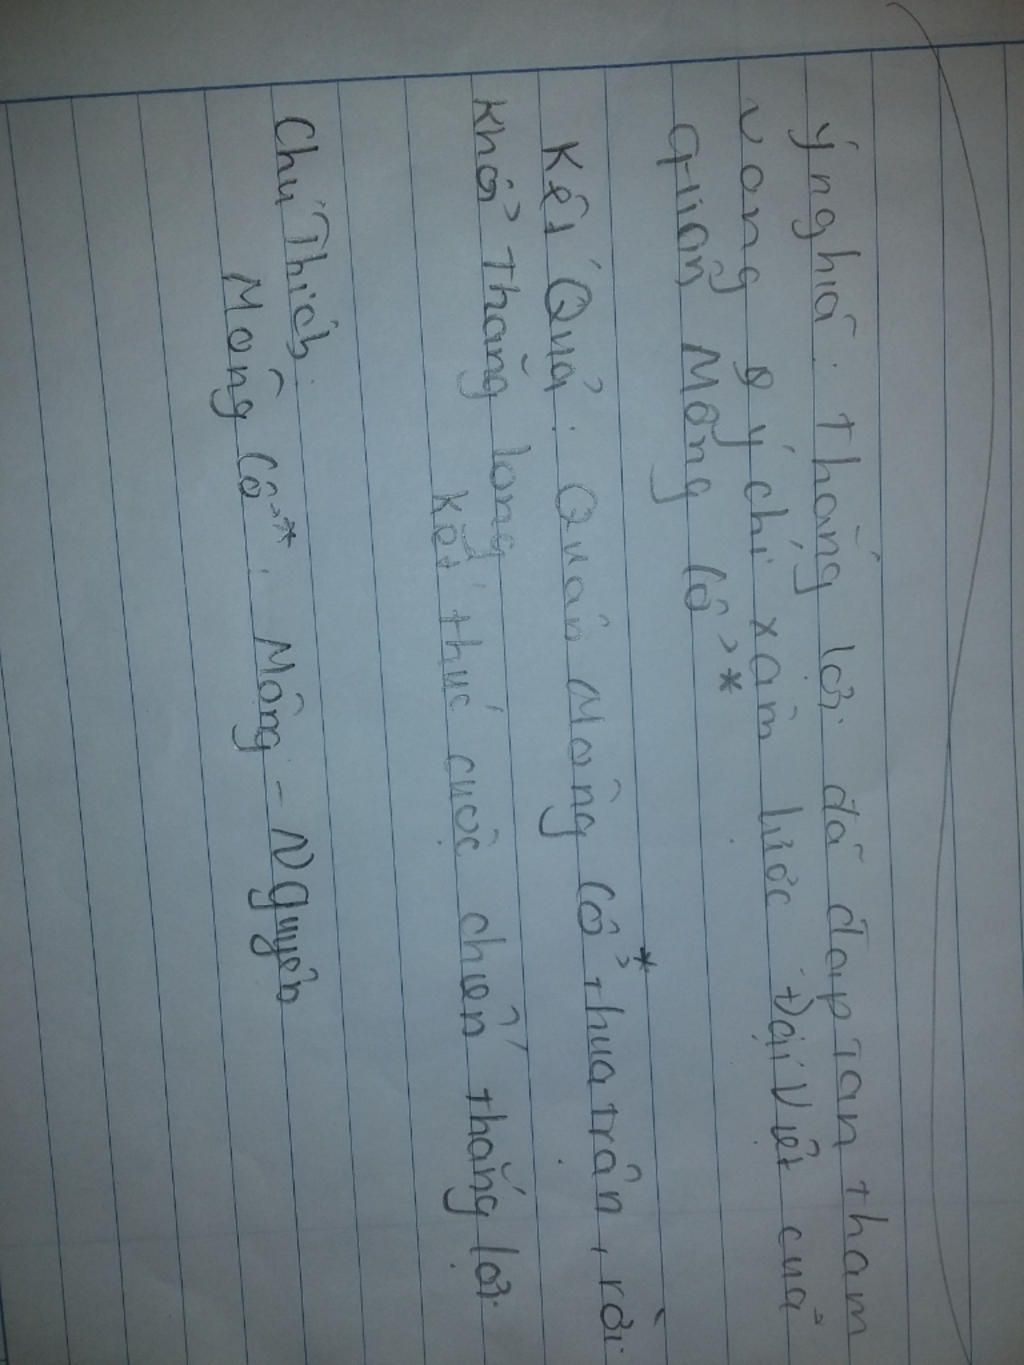 ý nghĩa: thắng lợi đã đập tan tham
vong ý chí xâm lược Đại Việt của
quân Mông Cổ*
Kết Quả: Quân Mông Cổ* thua trận, rời
khỏi Thăng long
kết thúc cuộc chiến thắng lợi.
Chú Thích:
Mông Cổ*: Mông - Nguyên